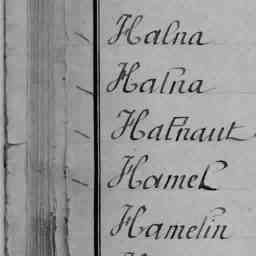 Halna
Halna
Halnaut
Hamel
Hamelin